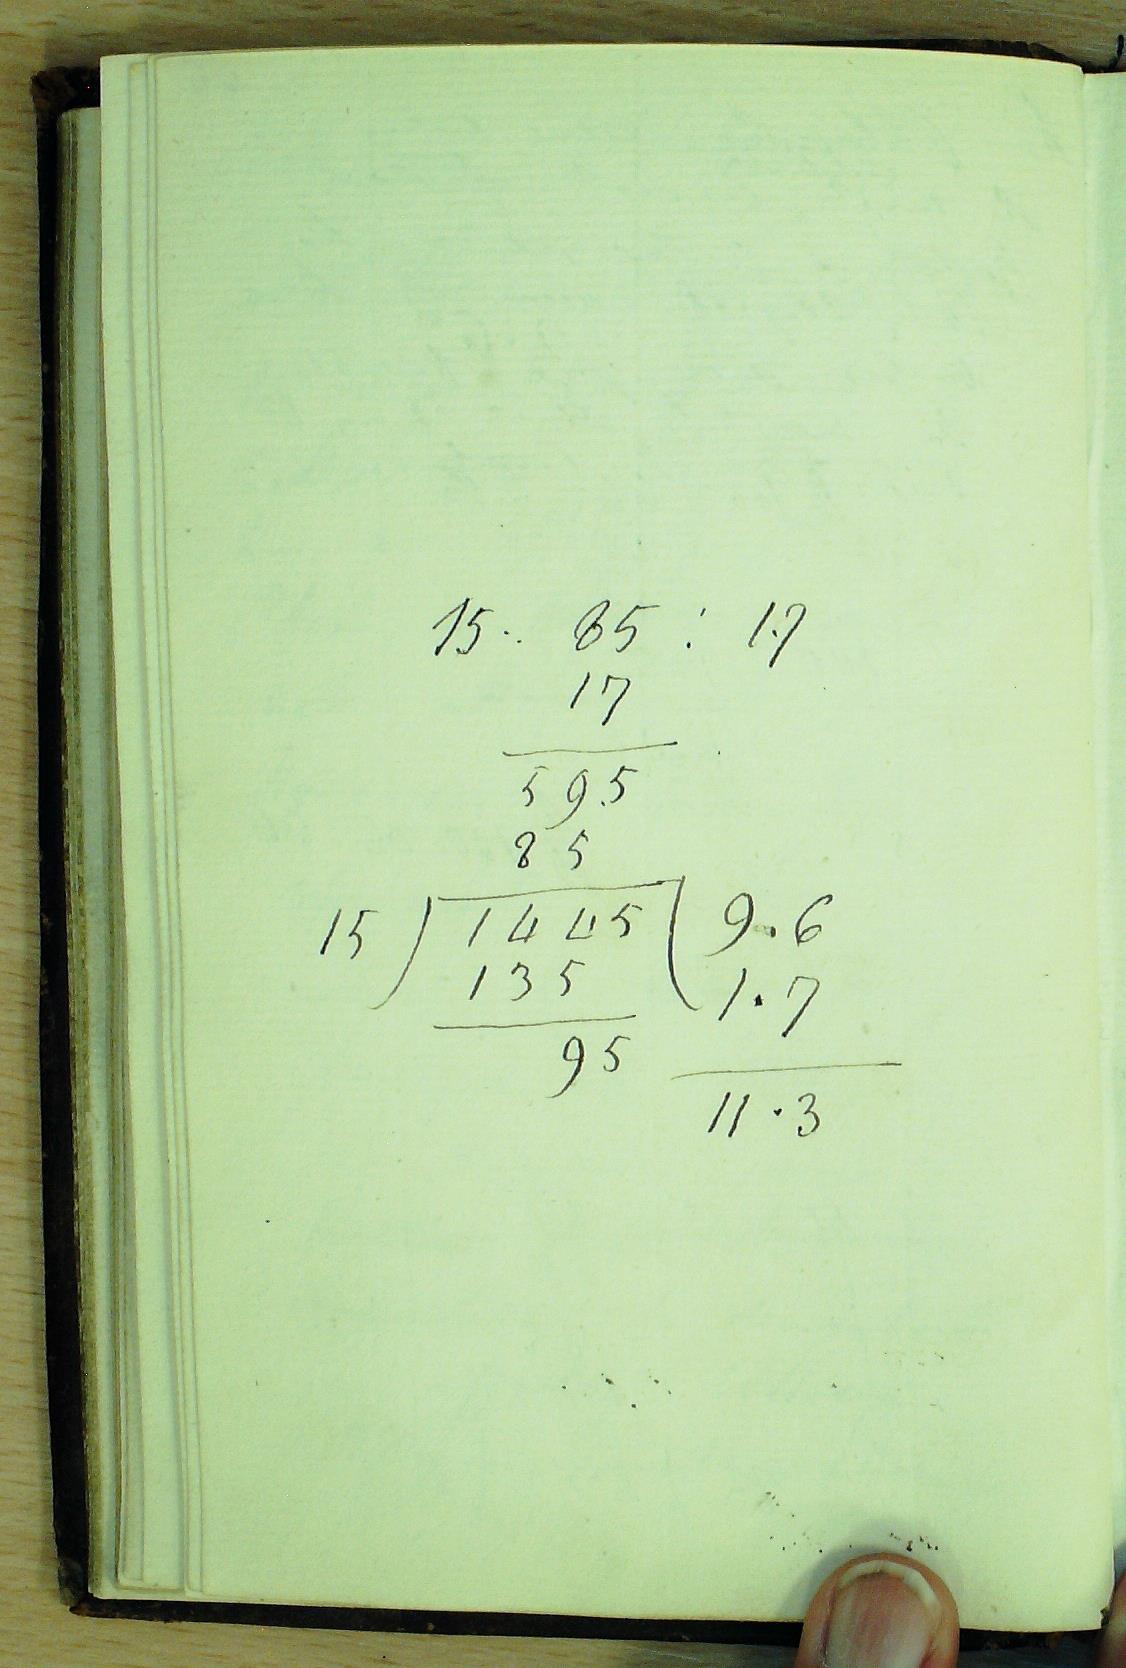 15.. 85 : 1.7
17
595
85
15 ) 1445 ( 9.6
135 1.7
95
11.3